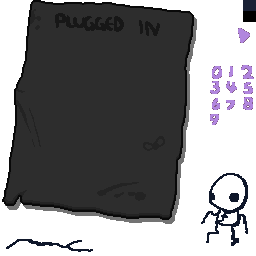 PLUGGED IN
0 1 2
3 4 5
6 7 8
9